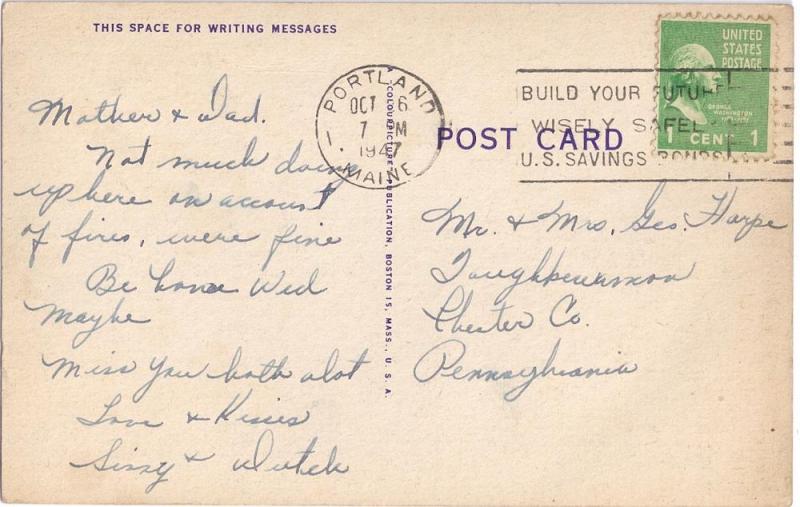 THIS SPACE FOR WRITING MESSAGES
Mother & Dad.
Not much doing
up here on account
of fires, were fine
Be home Wed
Maybe
Miss You both alot
Love & Kisses
Sissy & Dutch
COLOURPICTURE PUBLICATION, BOSTON 15, MASS., U. S. A.
PORTLAND
OCT 6
7 PM
1947
MAINE
1
BUILD YOUR FUTURE
WISELY SAFELY
U.S. SAVINGS BONDS
UNITED
STATES
POSTAGE
GEORGE
WASHINGTON
1 CENT 1
POST CARD
Mr. & Mrs. Geo. Harpe
Chester Co.
Pennsylvania